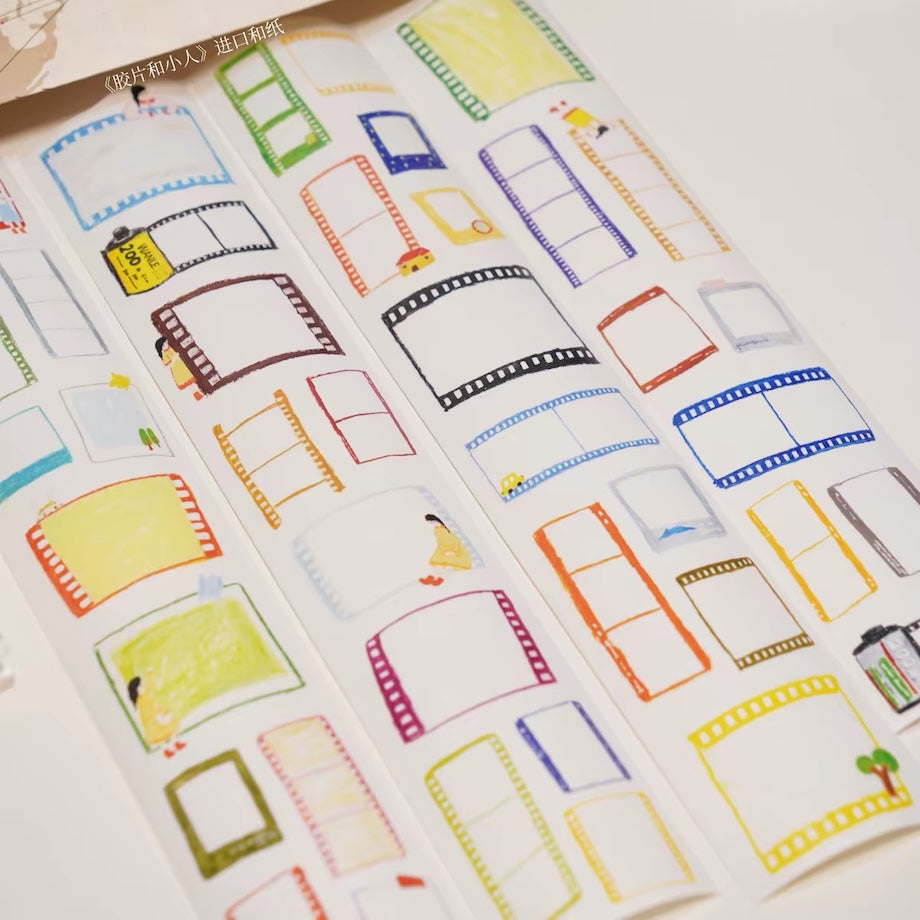 《胶片和小人》进口和纸
WANLE
200